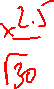 ×2.5
√30